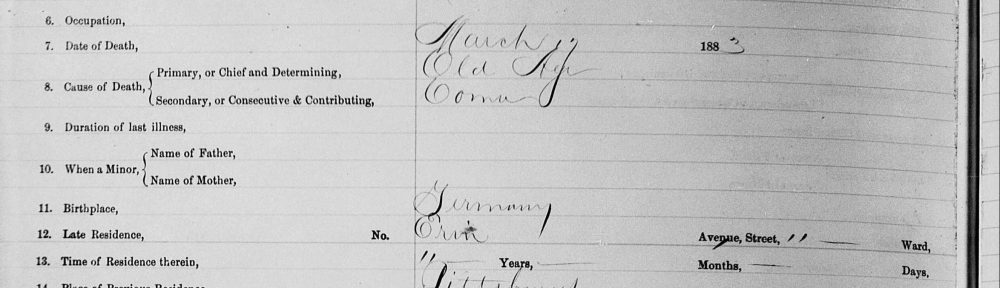 6. Occupation,
7. Date of Death, March 17 1883
8. Cause of Death, Primary, or Chief and Determining, Old Age
Secondary, or Consecutive & Contributing, Coma
9. Duration of last illness,
10. When a Minor, Name of Father,
Name of Mother,
11. Birthplace, Germany
12. Late Residence, No. Erin Avenue, Street, 11 Ward,
13. Time of Residence therein, " Years, Months, Days,
14. Place of Previous Residence Pittsburgh